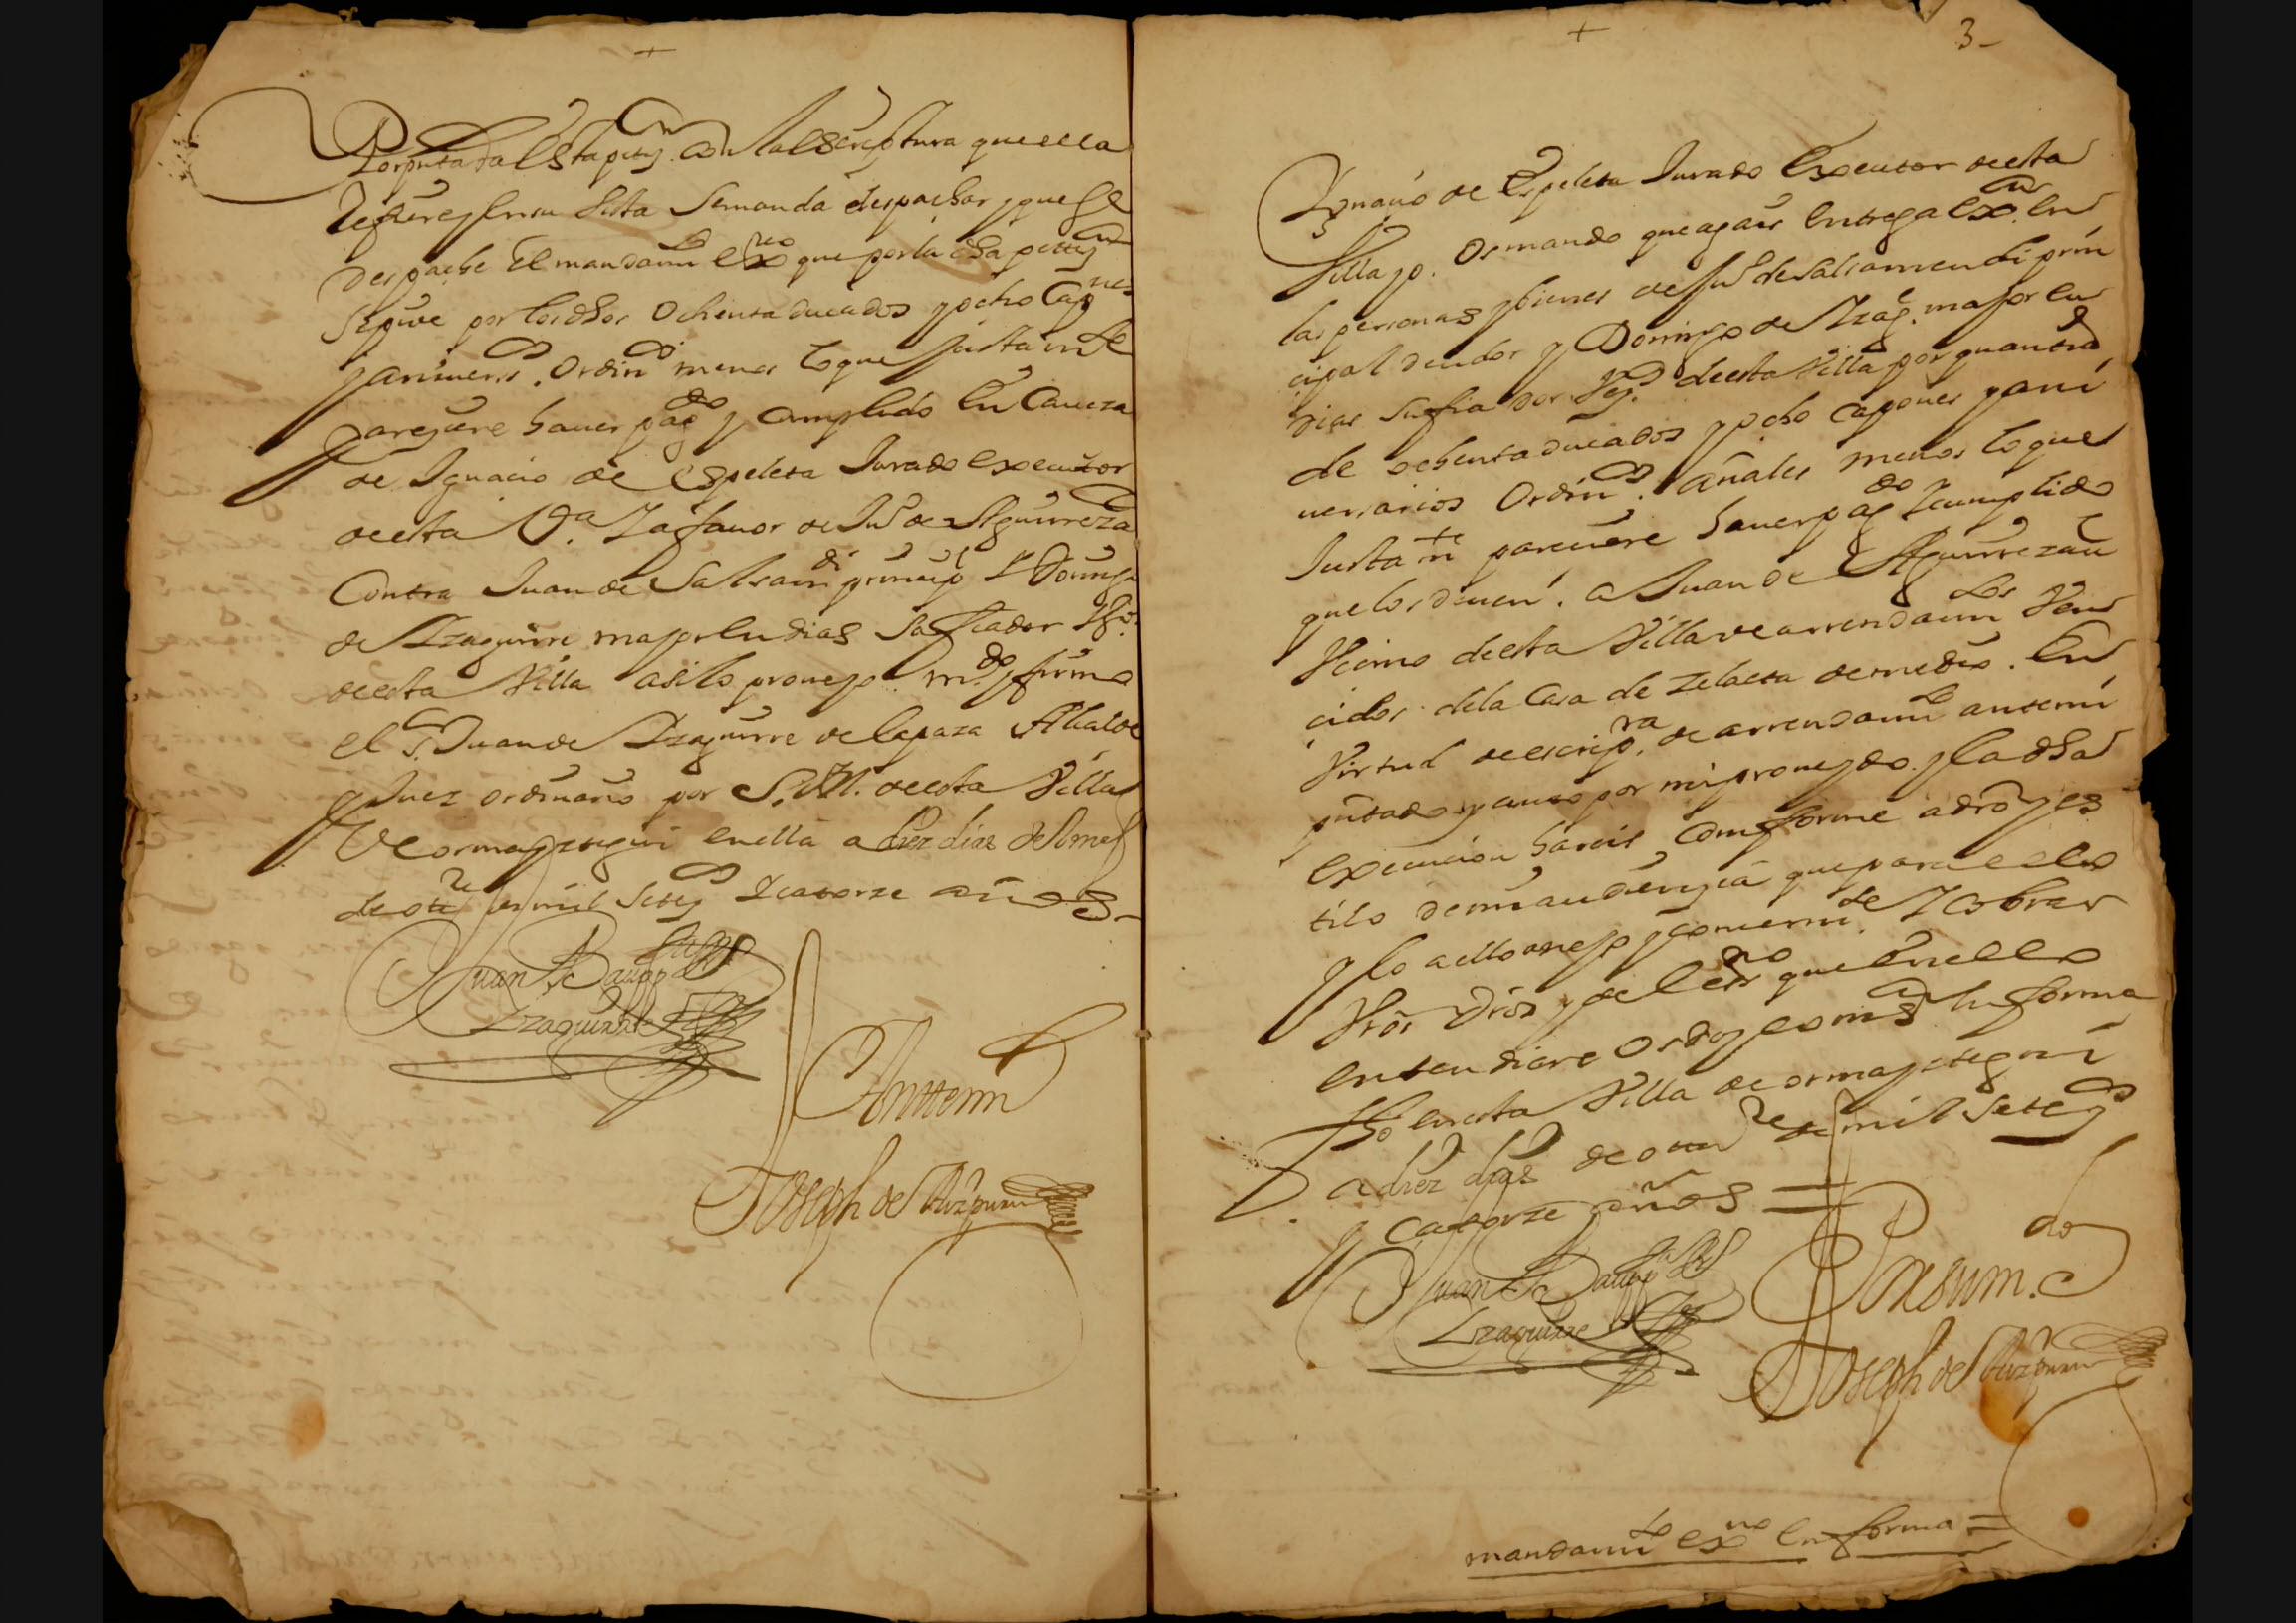 +
Por pntada Esta petiz.on Con la Escriptura que ella
Refiere y en su Vista Se manda despachar y que se
Despache El mandam.to ex.uo que por la dha petiz.on
Se pide por los dhos Ochenta ducados y ocho Cap.nes
y anivers.os Ordin.os menos lo que Justam.te
pareziere haver pag.do y Cumplido En Caveza
de Ignacio de Espeleta Jurado executor
de esta V.a Y a favor de Ju.o de Aguirrezau
Contra Juan de Salsam.di prinzip.l Y Domingo
de Yzaguirre mayor en dias Su fiador Vz.os
de esta Villa asi lo proveyo m.do y firmo
el S.r Juan de Yzaguirre de lapaza Alcalde
y Juez ordinario por S. M. de esta Villa
De ormayztegui en ella a diez dias del mes
de ot.re de mil Setez.os Y catorze años
Juan Bauap.ta
Yzaguirre
Ante mi
Joseph de Aizpuru
+
3
Ignacio de Espeleta Jurado Executor de esta
Villa yo. Os mando que agais Entrega Ex.on En
las personas y bienes de Ju.o de Salsamendi prin
cipal deudor y Domingo de Yzag.e mayor en
dias Su fiador Vez.os de esta Villa por quantia
de ochenta ducados y ocho capones y ani
versarios Ordin.os añales menos lo que
Justam.te pareziere haver pag.do Y cumplido
que los deven. a Juan de Aguirrezau
Vecino de esta Villa de arrendam.tos Ven
cidos de la Casa de Zelaeta de medio. En
Virtud de escrip.ra de arrendam.to ante mi
pntado y auto por mi proveydo. y la dha
Execucion hareis Conforme a dro y es
tilo de mi audiencia que para ello
y lo a ello anejo y conzerni.te Y cobrar
Vros dros y de el ess.no que En ello
entendiere os doy comis.on En forma
fho en esta Villa de ormayztegui
a diez dias de ot.re de mil Setez.os
y catorze años =
Juan Bauap.ta
Yzaguirre
Por su m.do
Joseph de Aizpuru
mandam.to ex.uo En forma =